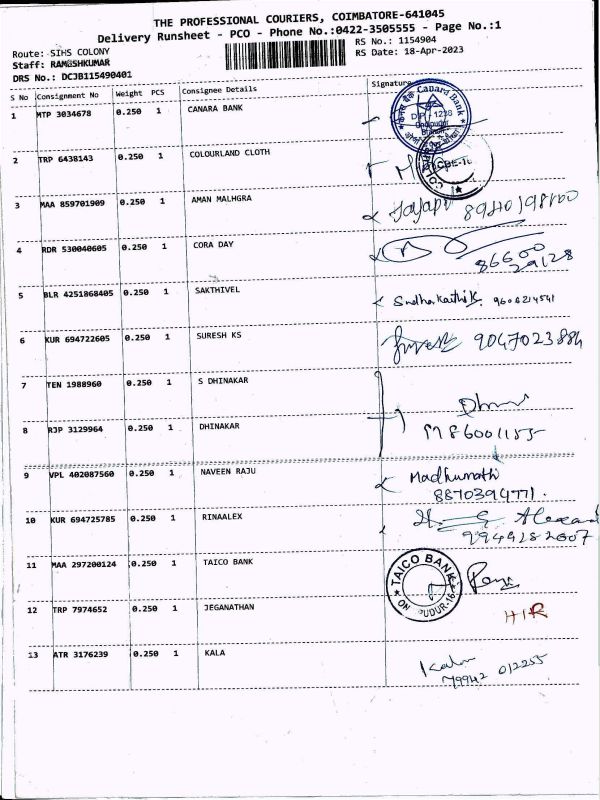 THE PROFESSIONAL COURIERS, COIMBATORE-641045
Delivery Runsheet - PCO - Phone No.:0422-3505555 - Page No.:1
Route: SIHS COLONY
RS No.: 1154904
Staff: RAMESHKUMAR
RS Date: 18-Apr-2023
DRS No.: DCJB115490401
S No Consignment No Weight PCS Consignee Details Signature
1 MTP 3034678 0.250 1 CANARA BANK
Canara Bank
2 TRP 6438143 0.250 1 COLOURLAND CLOTH
3 MAA 859701909 0.250 1 AMAN MALHGRA
4 RDR 530040605 0.250 1 CORA DAY
86600
29128
5 BLR 4251868405 0.250 1 SAKTHIVEL
9606214541
6 KUR 694722605 0.250 1 SURESH KS
9047023884
7 TEN 1988960 0.250 1 S DHINAKAR
8 RJP 3129964 0.250 1 DHINAKAR
9 VPL 402087560 0.250 1 NAVEEN RAJU
Madhumathi
8870394771.
10 KUR 694725785 0.250 1 RINAALEX
9949282607
11 MAA 297200124 0.250 1 TAICO BANK
TAICO BANK
12 TRP 7974652 0.250 1 JEGANATHAN
HIR
13 ATR 3176239 0.250 1 KALA
Kala
79942 012255